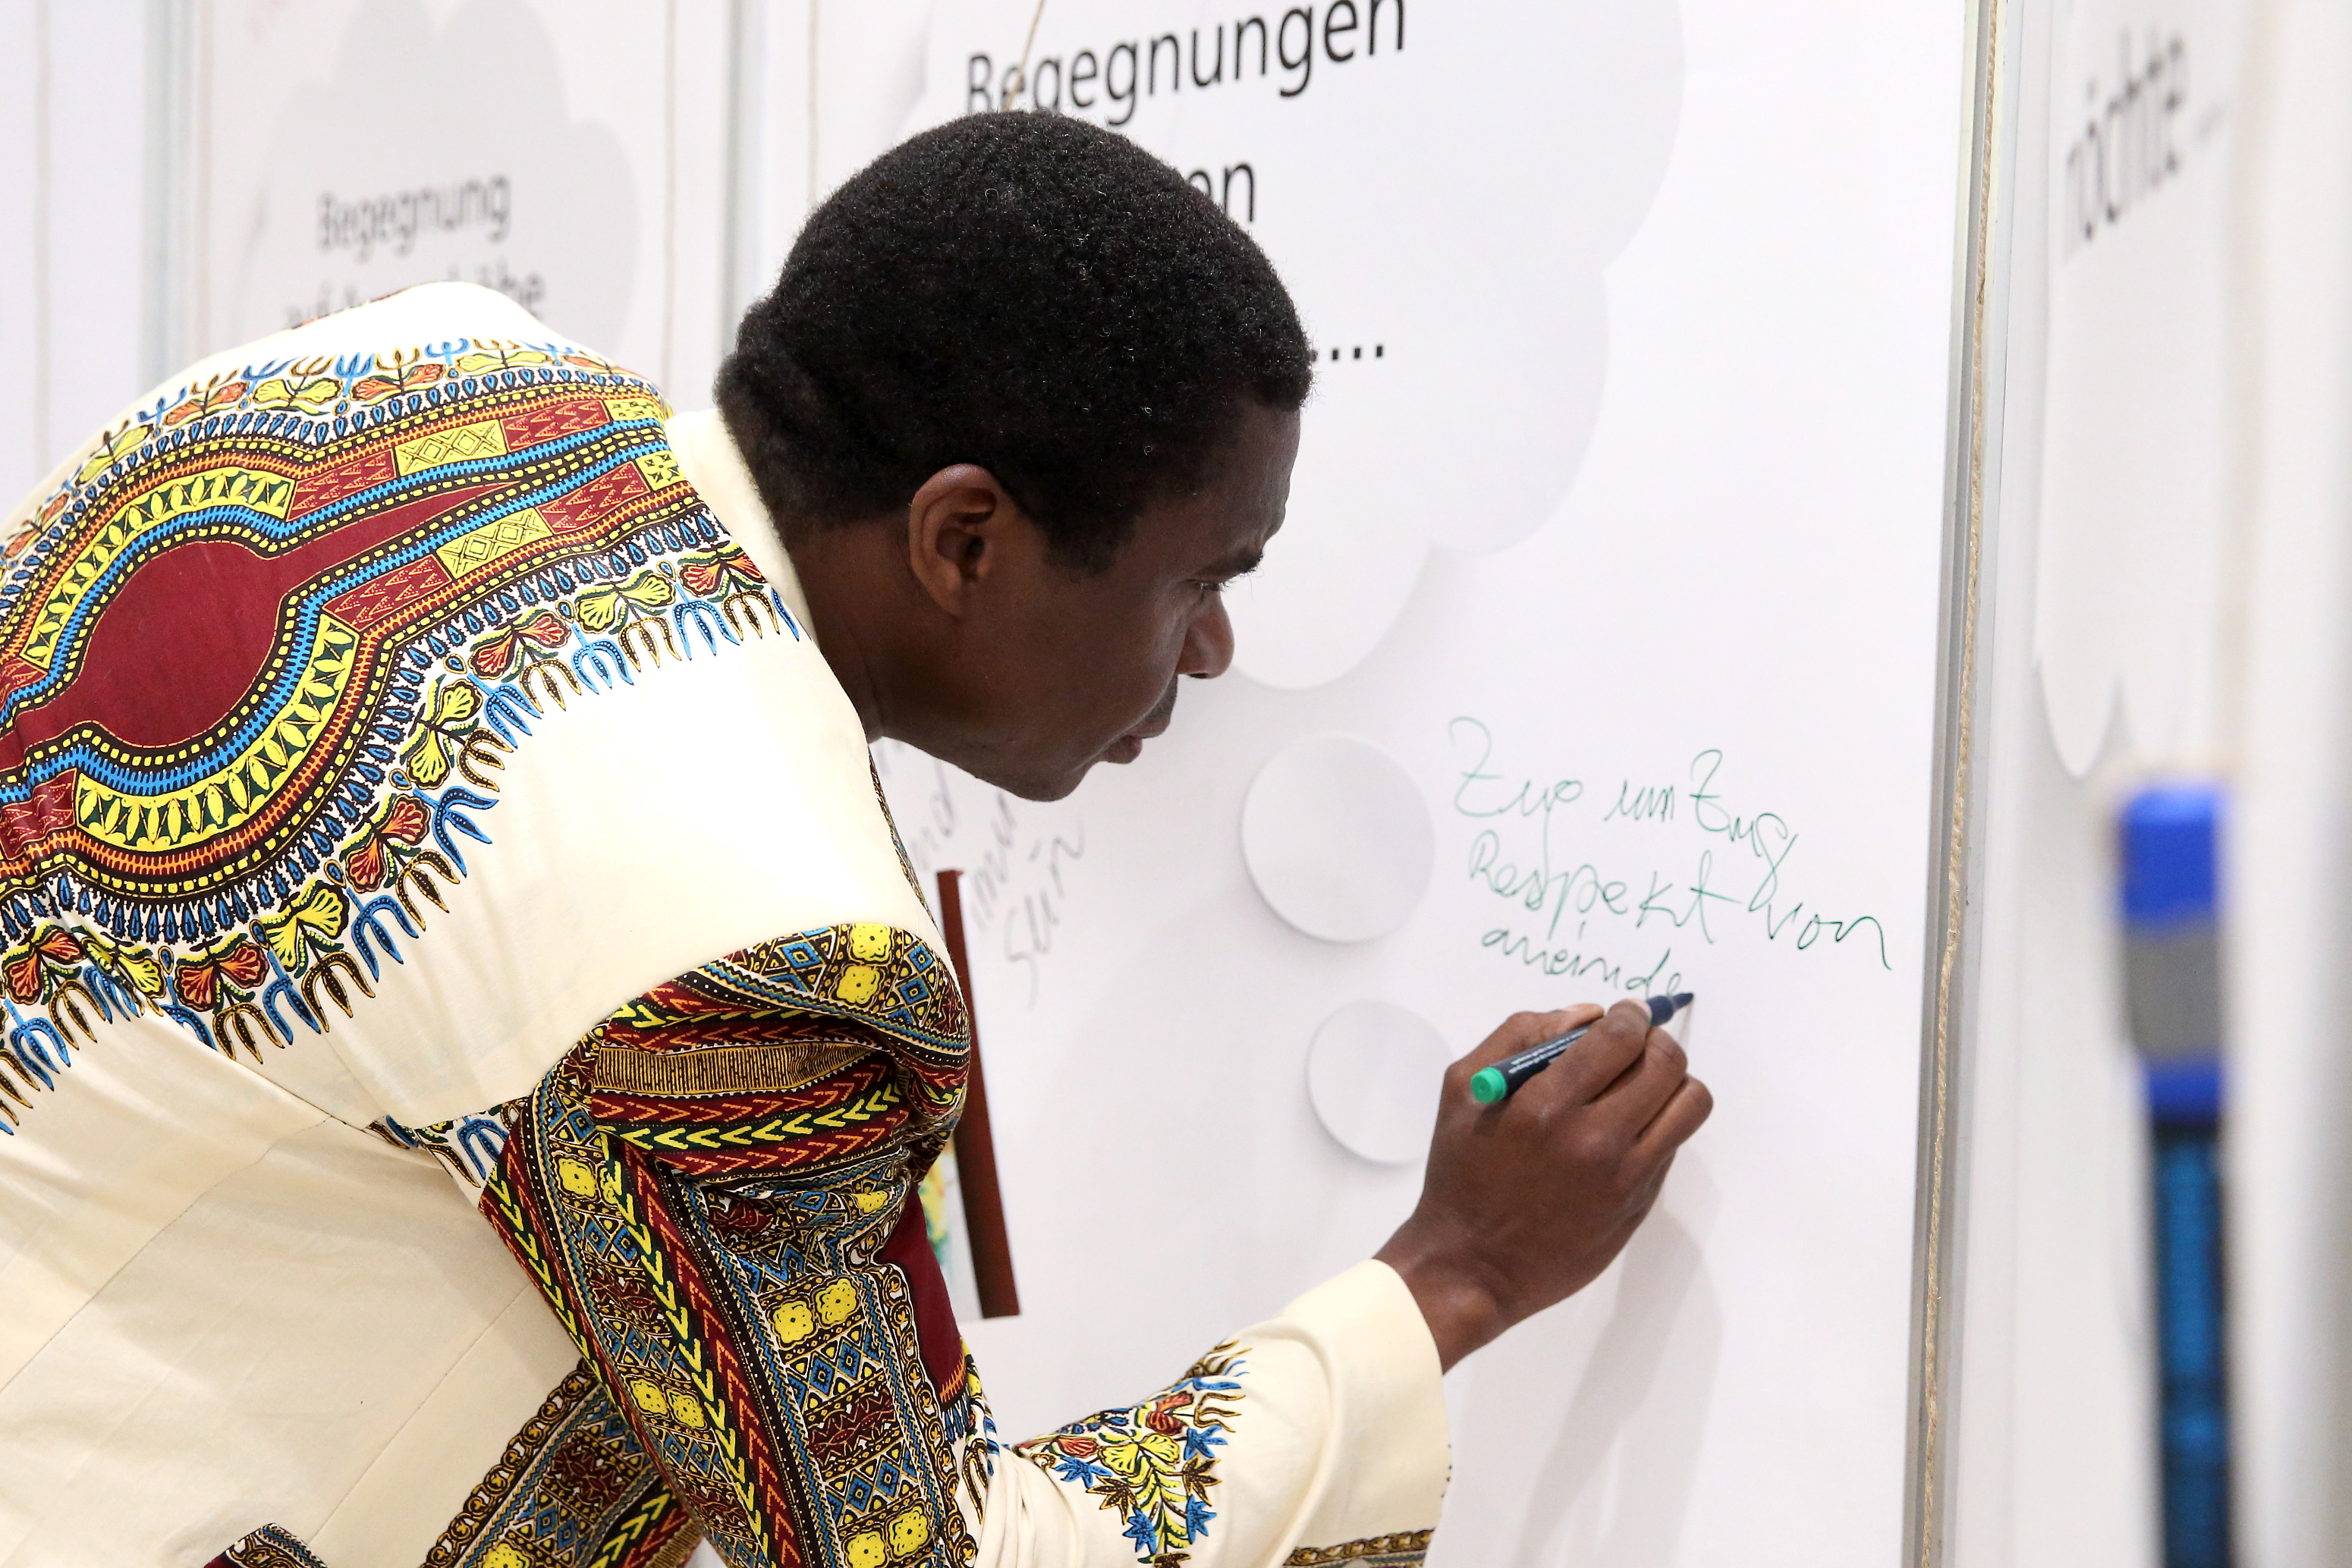 Begegnungen
en
....
Begegnung
möchte ...
Zug um Zug
Respekt von
aneinde
sein